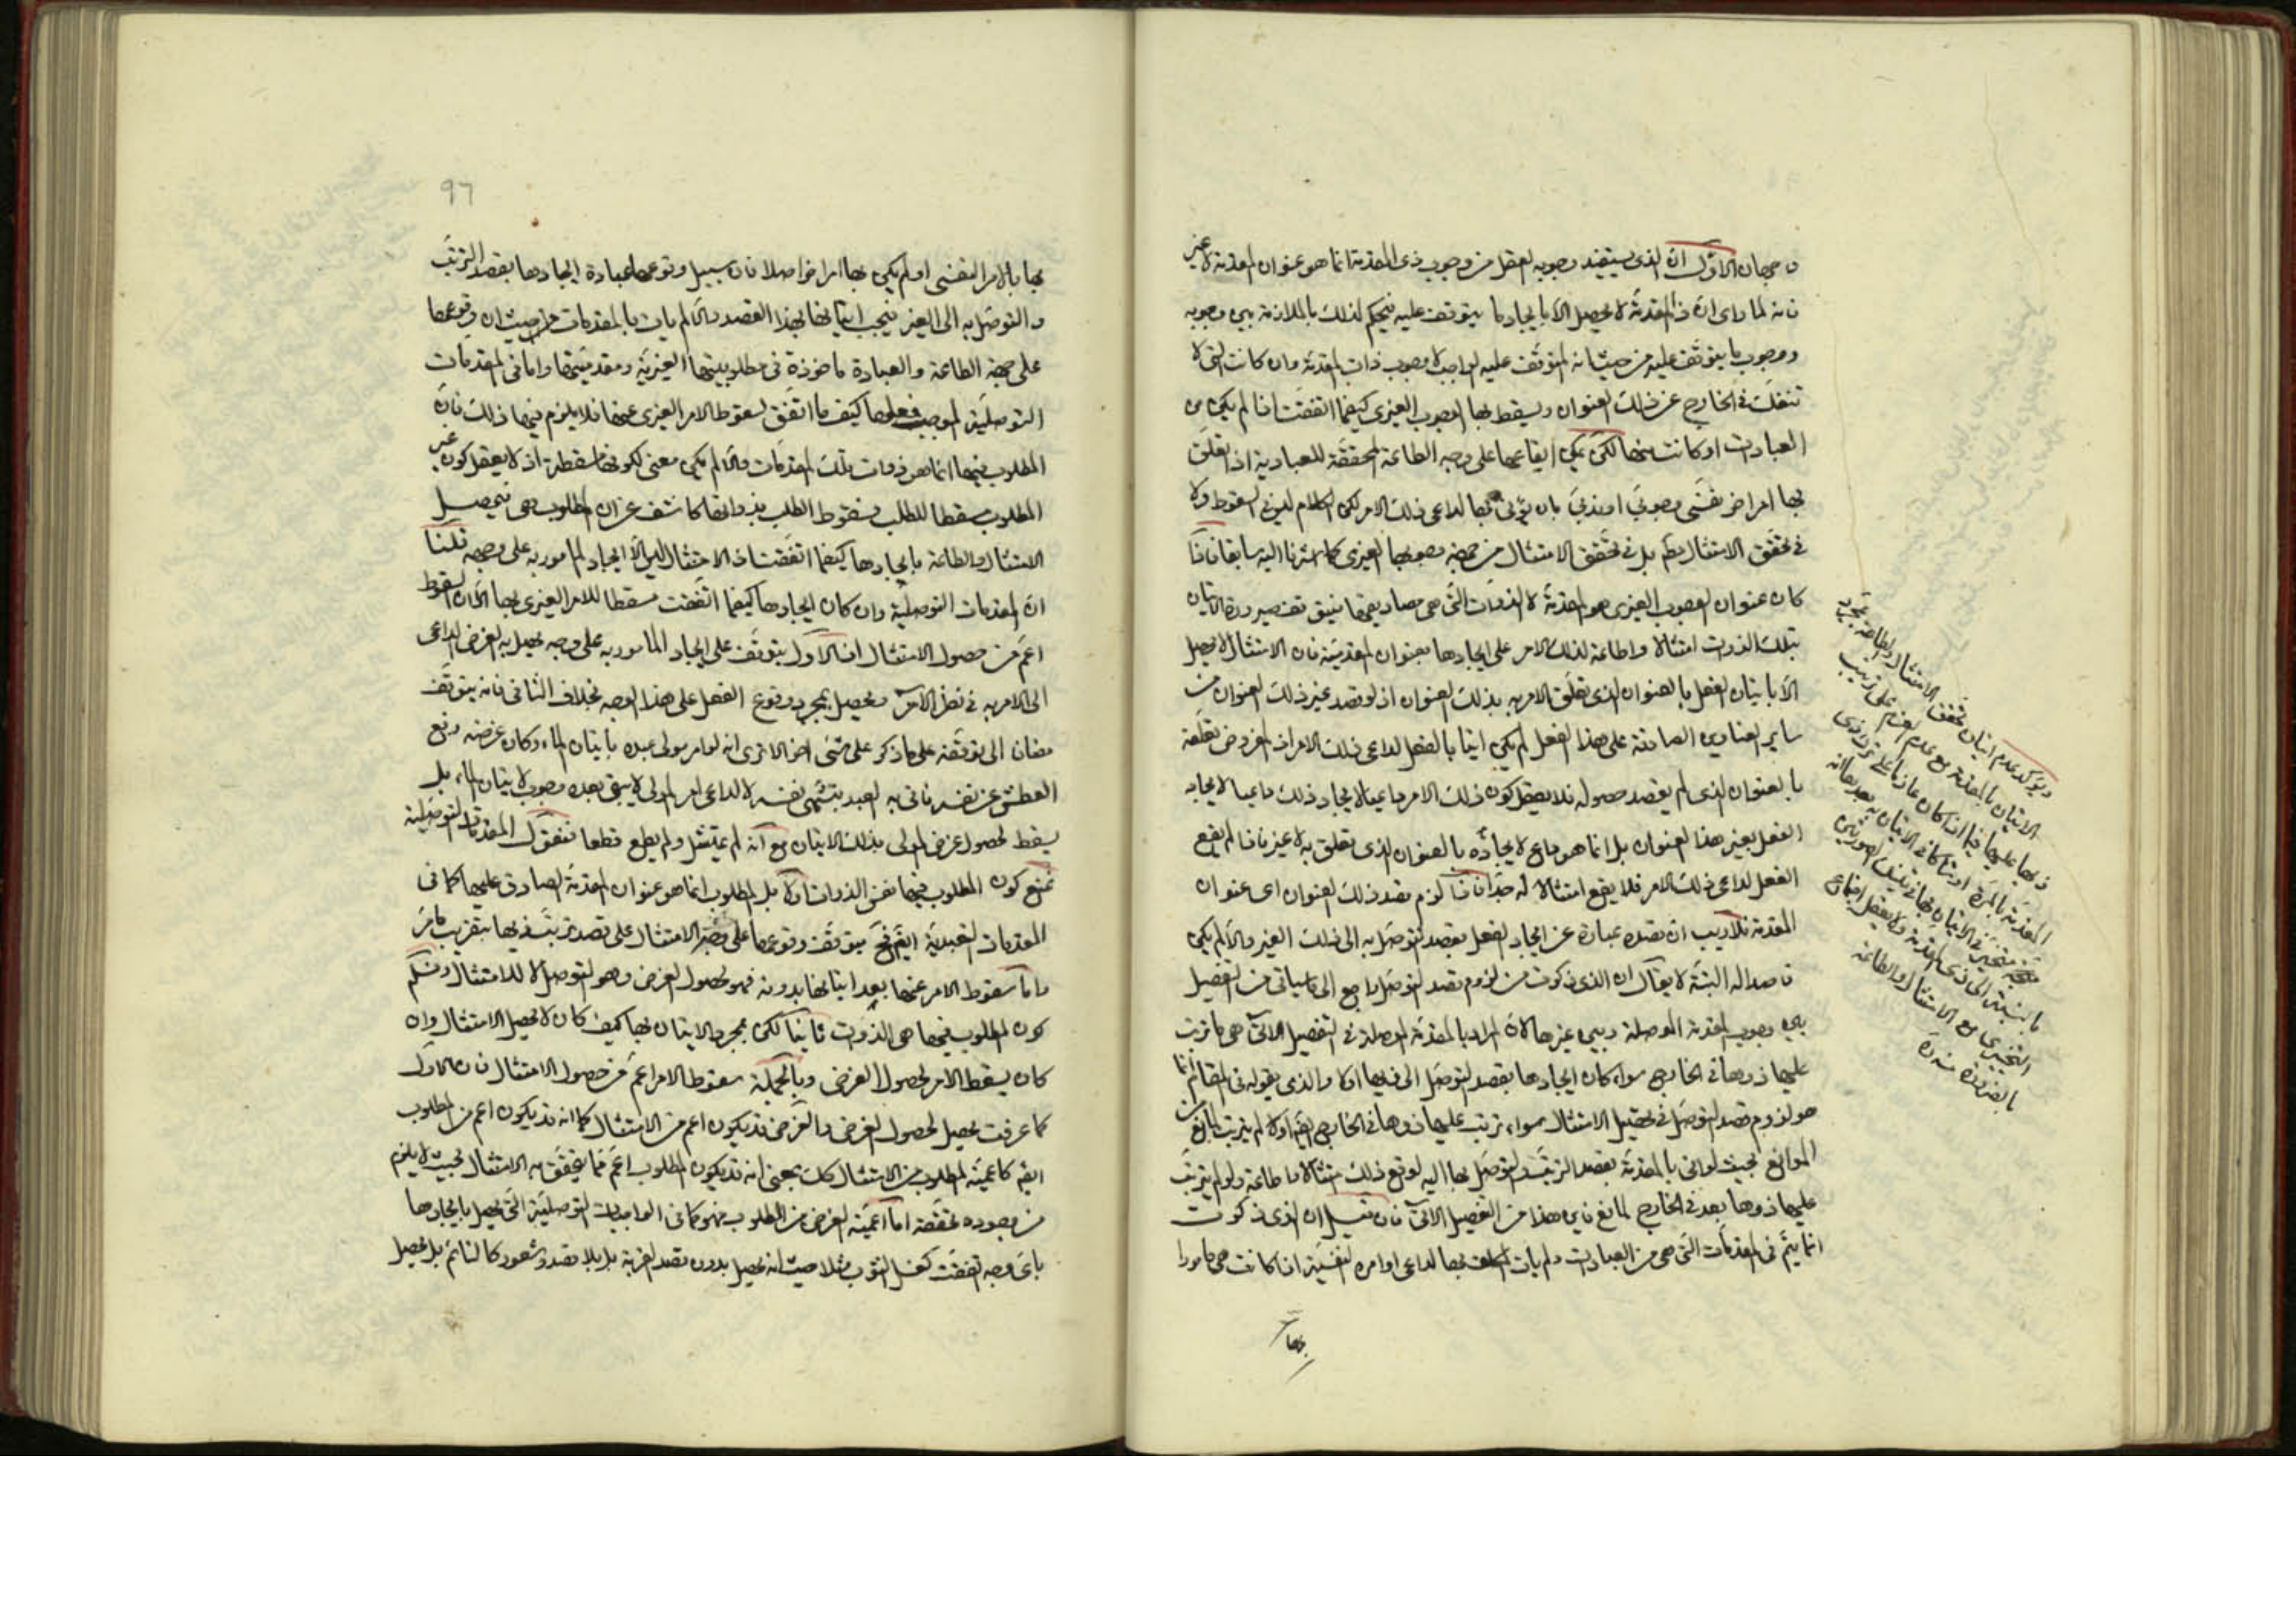 وجهان الأوّل انّ الذي يستفيد وجوبه العقل من وجوب ذي المقدمة انما هو عنوان المقدمة لا غير
فانه لما راى انّ ذا المقدمة لا يحصل الا بايجاد ما يتوقف عليه فيحكم لذلك بالملازمة بين وجوبه
ووجوب ما يتوقف عليه من حيث انه المتوقف عليه الواجب لا وجوب ذات المقدمة وان كانت التى لا
تنفك في الخارج عن ذلك العنوان ويسقط بها الوجوب الغيري كيفما اتفقت اذا لم يكن من
العبادات او كانت منها لكن يمكن ايقاعها على وجه الطاعة المحققة للعبادية اذا تعلق
بها امر اخر نفسي وجوبي او ندبي بان يؤتى بها لداعي ذلك الامر لكن الكلام ليس في السقوط ولا
في تحقق الامتثال بل في تحقق الامتثال من جهة وجوبها الغيري كما اشرنا اليه سابقا فاذا
كان عنوان الوجوب الغيري هو المقدمة لا الذوات التى هي مصاديقها فيتوقف صيرورة الاتيان
بتلك الذوات امتثالا واطاعة لذلك الامر على ايجادها بعنوان المقدمية فان الامتثال لا يحصل
الا باتيان الفعل بالعنوان الذي تعلق الامر به بذلك العنوان اذ لو قصد غير ذلك العنوان من
ساير العناوين الصادقة على هذا الفعل لم يكن اتيانا بالفعل لداعي ذلك الامر اذ المفروض تعلقه
بالعنوان الذي لم يقصد حصوله فلا يعقل كون ذلك الامر داعيا لايجاد ذلك داعيا لايجاد
الفعل بغير هذا العنوان بل انما هو داع لايجاده بالعنوان الذي تعلق به لا غير فاذا لم يقع
الفعل لداعي ذلك الامر فلا يقع امتثالا له جدا فاذا لزم قصد ذلك العنوان اى عنوان
المقدمة فلا ريب ان قصده عبارة عن ايجاد الفعل بقصد التوصل به الى ذلك الغير والا لم يكن
قاصدا له البتة لا يقال ان الذي ذكرت من لزوم قصد التوصل راجع الى ما سياتى من التفصيل
بين وجوب المقدمة الموصلة وبين غيرها لانّ المراد بالمقدمة الموصلة في التفصيل الآتي هي ما ترتب
عليها ذوها في الخارج سواء كان ايجادها بقصد التوصل الى ذيها او لا والذي يقوله في المقام انما
هو لزوم قصد التوصل في تحصيل الامتثال سواء ترتب عليها ذوها في الخارج ايضا او لا لم يترتب لمانع من
الموانع بحيث لو اتى بالمقدمة بقصد الترتب والتوصل بها اليه لوقع ذلك امتثالا واطاعة ولو لم يترتب
عليها ذوها بعد في الخارج لمانع فاين هذا من التفصيل الآتي فان قيل ان الذي ذكرت
انما يتم في المقدمات التى هي من العبادات ولم يات المكلف بها لداعي اوامره النفسية اذا كانت هي مامورا
بها
ويؤكد عدم اتيان تحقق الامتثال والطاعة بمجرد
الاتيان بالمقدمة مع عدم العزم على ترتيب
ذيها عليها فيما اذا كان عازما على ترك ذي
المقدمة بالمرة او شاكا في الاتيان به بعد فانه
متحير في الاتيان بها في تينك الصورتين
بالنسبة الى ذي المقدمة ولا يعقل اجتماع
التحير مع الامتثال والطاعة
بالضرورة منه ره
٩٦
بها بالامر النفسي او لم يكن بها امر اخر اصلا فان سبيل وقوعها عبادة ايجادها بقصد الترتب
والتوصل به الى الغير فيجب اتيانها بهذا القصد والا لم يات بالمقدمات من حيث ان وقوعها
على جهة الطاعة والعبادة ماخوذة في مطلوبيتها الغيرية ومقدميتها واما في المقدمات
التوصلية الموجب فعلها كيف ما اتفق لسقوط الامر الغيري عنها فلا يلزم فيها ذلك فانّ
المطلوب فيها انما هو ذوات تلك المقدمات والا لم يكن معنى لكونها مسقطة اذ لا يعقل كون غير
المطلوب مسقطا للطلب فسقوط الطلب بذواتها كاشف عن ان المطلوب هي فيحصل
الامتثال والطاعة بايجادها كيفما اتفقت اذ الامتثال ليس الا ايجاد المامور به على وجهه قلنا
ان المقدمات التوصلية وان كان ايجادها كيفما اتفقت مسقطا للامر الغيري بها الا ان السقوط
اعم من حصول الامتثال اذ الاول يتوقف على ايجاد المامور به على وجه يحصل به الغرض الداعي
الى الامر به في نظر الآمر ويحصل بمجرد وقوع الفعل على هذا الوجه بخلاف الثاني فانه يتوقف
مضافا الى توقفه على ما ذكر على شئ اخر الا ترى انه لو امر مولى عبده باتيان الماء وكان غرضه رفع
العطش عن نفسه فاتى به العبد بتشهى نفسه لا لداعي امر المولى لا يبقى بعده وجوب لاتيان الماء بل
يسقط لحصول غرض المولى بذلك الاتيان مع انه لم يمتثل ولم يطع قطعا فنقول المقدمات التوصلية
نمنع كون المطلوب فيها نفس الذوات اولا بل المطلوب انما هو عنوان المقدمة الصادق عليها كما في
المقدمات التعبدية ايضا فح يتوقف وقوعها على وجه الامتثال على قصد ترتب ذيها بتقريب ما مرّ
واما سقوط الامر عنها بعد اتيانها بدونه فهو لحصول الغرض وهو التوصل لا للامتثال ونسلم
كون المطلوب فيها هي الذوات ثانيا لكن بمجرد الاتيان بها كيف كان لا يحصل الامتثال وان
كان يسقط الامر لحصول الغرض وبالجملة سقوط الامر اعم من حصول الامتثال فان الاول
كما عرفت يحصل لحصول الغرض والغرض قد يكون اعم من الامتثال كما انه قد يكون اعم من المطلوب
ايضا كاعمية المطلوب من الامتثال كك بمعنى انه قد يكون المطلوب اعم مما يتحقق به الامتثال بحيث لا يلزم
من وجوده تحققه اما اعمية الغرض من المطلوب فهو كما في الواجبات التوصلية التى يحصل بايجادها
باى وجه اتفقت كغسل الثوب مثلا حيث انه يحصل بدون قصد القربة بل بلا قصد وشعور كالنائم بل يحصل